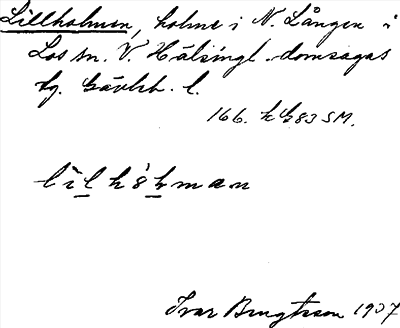 Lillholmen, holme i N. Lången i
Los sn. V. Hälsingl. domsagas
tg. Gävleb. l.
166. h G 83 SM.
Ivar Bengtsson 1937